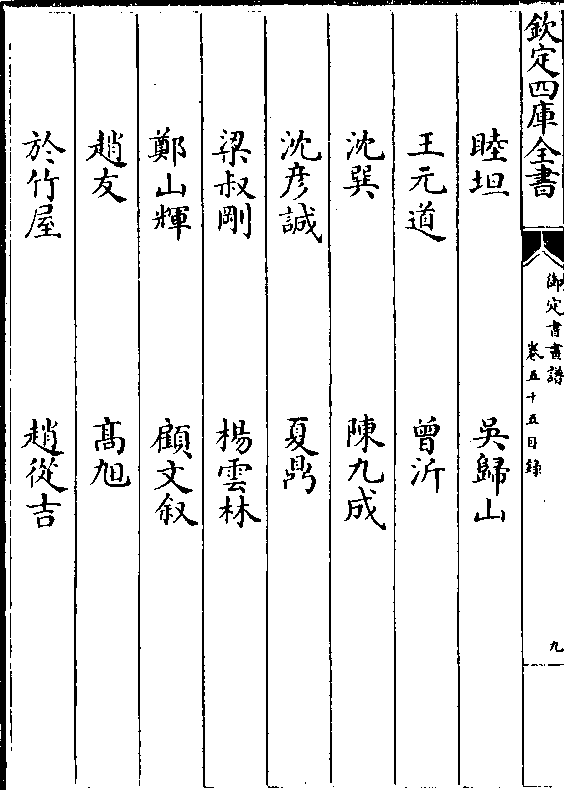 欽定四庫全書
御定書畫譜
卷五十五目錄
九
睦坦　吳歸山
王元道　曾沂
沈巽　陳九成
沈彦誠　夏鼎
梁叔剛　楊雲林
鄭山輝　顧文叙
趙友　髙旭
於竹屋　趙從吉